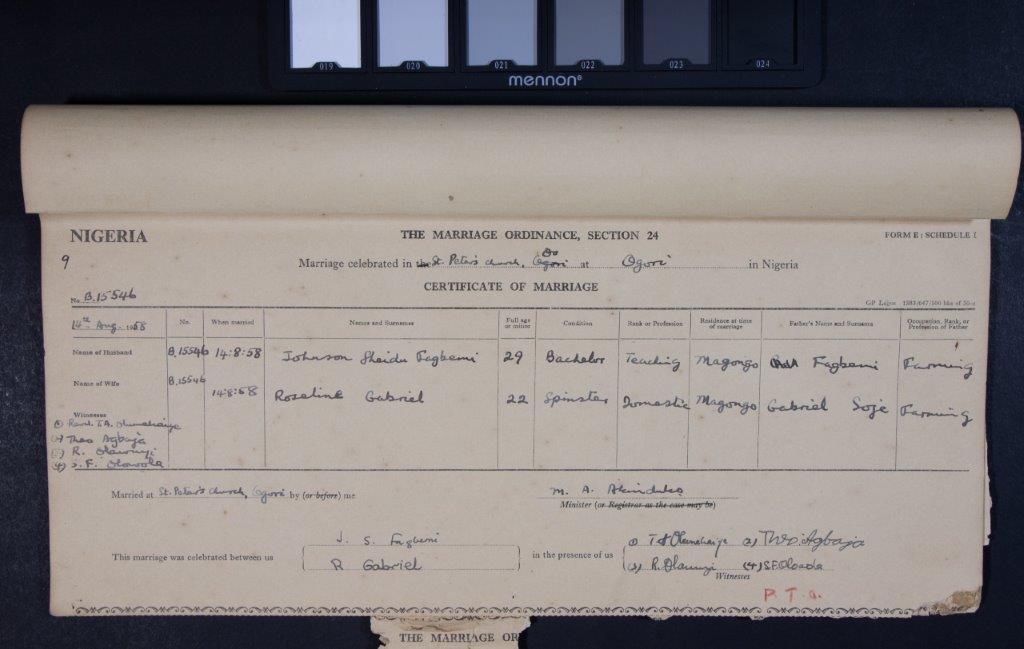 019 020 021 022 023 024
mennon®
NIGERIA
THE MARRIAGE ORDINANCE, SECTION 24
FORM E : SCHEDULE I
9
Marriage celebrated in the St. Peter's church, Ogori at Ogori in Nigeria
CERTIFICATE OF MARRIAGE
No. B.15546
GP Lagos 1583/647/500 bks of 50-4
14th Aug. 1958
No. When married Names and Surnames Full age or minor Condition Rank or Profession Residence at time of marriage Father's Name and Surname Occupation, Rank, or Profession of Father
Name of Husband B.15546 14:8:58 Johnson Sheidu Fagbemi 29 Bachelor Teaching Magongo Fagbemi Farming
Name of Wife B.15546 14:8:58 Roseline Gabriel 22 Spinster Domestic Magongo Gabriel Soje Farming
Witnesses
(1) Revd. T.A. Olumehaiye
(2) Theo Agbaja
(3) R. Olawuyi
(4) S. F.
Married at St. Peter's church, Ogori by (or before) me M. A.
Minister (or Registrar as the case may be)
This marriage was celebrated between us J. S. Fagbemi in the presence of us (1) T A Olumehaiye (2) Theo: Agbaja
R Gabriel (3) R. Olawuyi (4) S.F.
Witnesses
P. T. O.
THE MARRIAGE OR